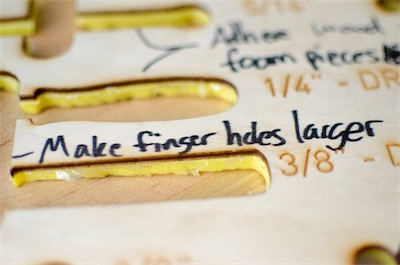 5/16"
Adhee wood
foam pieces
1/4" - DR
- Make finger holes larger
3/8" - D